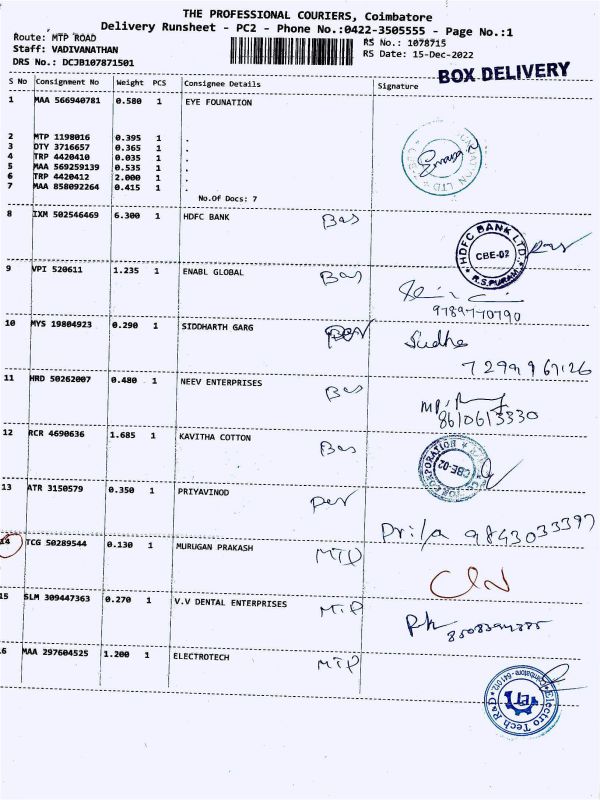 THE PROFESSIONAL COURIERS, Coimbatore
Delivery Runsheet - PC2 - Phone No.:0422-3505555 - Page No.:1
Route: MTP ROAD
Staff: VADIVANATHAN
DRS No.: DCJB107871501
RS No.: 1078715
RS Date: 15-Dec-2022
BOX DELIVERY
S No Consignment No Weight PCS Consignee Details Signature
1 MAA 566940781 0.580 1 EYE FOUNATION
2 MTP 1198016 0.395 1 .
3 DTY 3716657 0.365 1 .
4 TRP 4420410 0.035 1 .
5 MAA 569259139 0.535 1 .
6 TRP 4420412 2.000 1 .
7 MAA 858092264 0.415 1 .
No.Of Docs: 7
8 IXM 502546469 6.300 1 HDFC BANK Bas
HDFC BANK LTD. CBE-02 R.S.PURAM
9 VPI 520611 1.235 1 ENABL GLOBAL Bas
9789770790
10 MYS 19804923 0.290 1 SIDDHARTH GARG Per Sudha
7299967126
11 HRD 50262007 0.480 1 NEEV ENTERPRISES Bas
8610613330
12 RCR 4690636 1.685 1 KAVITHA COTTON Bas
CORPORATION CBE-02
13 ATR 3150579 0.350 1 PRIYAVINOD per
9843033397
14 TCG 50289544 0.130 1 MURUGAN PRAKASH MTP
15 SLM 309447363 0.270 1 V.V DENTAL ENTERPRISES MTP
6 MAA 297604525 1.200 1 ELECTROTECH MTP
Electro Tech R&D Coimbatore-641 012 ETI